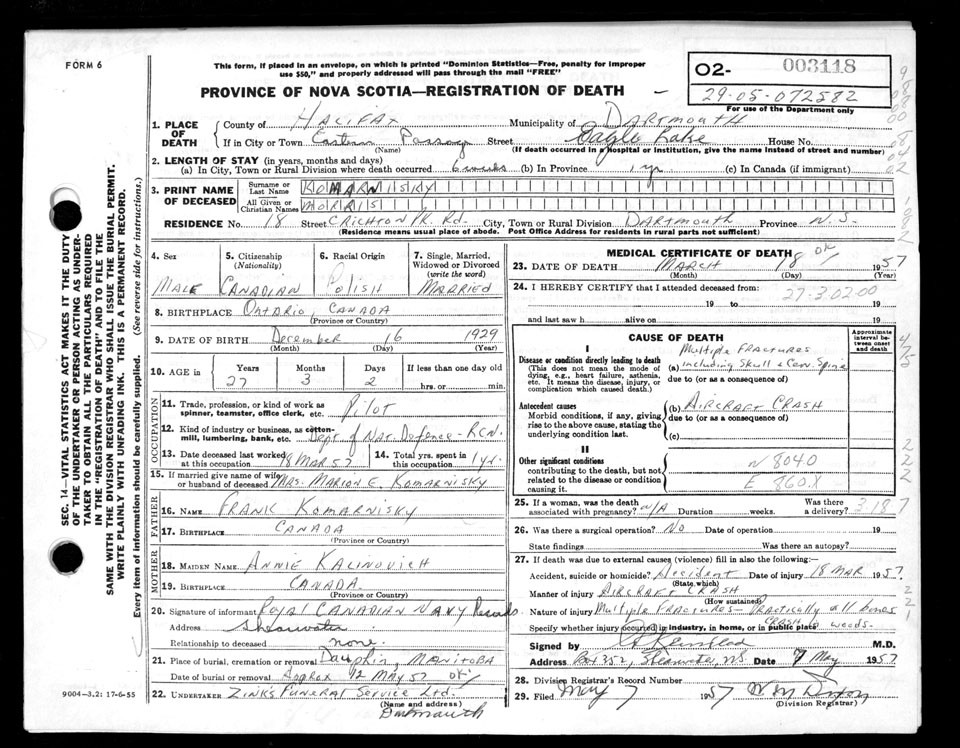 FORM 6
This form, if placed in an envelope, on which is printed "Dominion Statistics—Free, penalty for improper
use $50," and properly addressed will pass through the mail "FREE"
02- 003118
29-05-072582
For use of the Department only
PROVINCE OF NOVA SCOTIA—REGISTRATION OF DEATH
1. PLACE OF DEATH
County of HALIFAX Municipality of DARTMOUTH
If in City or Town Eastern Passage Street Eagle Lake House No.
(Name) (If death occurred in a hospital or institution, give the name instead of street and number)
2. LENGTH OF STAY (in years, months and days)
(a) In City, Town or Rural Division where death occurred (b) In Province 1 yr (c) In Canada (if immigrant)
3. PRINT NAME OF DECEASED
Surname or Last Name KOMARNISKY
All Given or Christian Names MORRIS
RESIDENCE No. 18 Street CRICHTON PK. Rd. City, Town or Rural Division DARTMOUTH Province N.S.
(Residence means usual place of abode. Post Office Address for residents in rural parts not sufficient)
SEC. 14—VITAL STATISTICS ACT MAKES IT THE DUTY
OF THE UNDERTAKER OR PERSON ACTING AS UNDER-
TAKER TO OBTAIN ALL THE PARTICULARS REQUIRED
IN THE "REGISTRATION OF DEATH" AND TO FILE THE
SAME WITH THE DIVISION REGISTRAR WHO SHALL ISSUE THE BURIAL PERMIT.
WRITE PLAINLY WITH UNFADING INK. THIS IS A PERMANENT RECORD.
Every item of information should be carefully supplied. (See reverse side for instructions.)
4. Sex
MALE
5. Citizenship
(Nationality)
CANADIAN
6. Racial Origin
Polish
7. Single, Married,
Widowed or Divorced
(write the word)
MARRIED
8. BIRTHPLACE ONTARIO, CANADA
(Province or Country)
9. DATE OF BIRTH December 16 1929
(Month) (Day) (Year)
10. AGE in
Years Months Days If less than one day old
27 3 2 hrs. or min.
OCCUPATION
11. Trade, profession, or kind of work as
spinner, teamster, office clerk, etc. Pilot
12. Kind of industry or business, as cotton-
mill, lumbering, bank, etc. Dept of Nat Defence - RCN.
13. Date deceased last worked
at this occupation 18 MAR 57
14. Total yrs. spent in
this occupation 1 yr.
15. If married give name of wife
or husband of deceased MRS. MARION E. KOMARNISKY
FATHER
16. NAME FRANK KOMARNISKY
17. BIRTHPLACE CANADA
(Province or Country)
MOTHER
18. MAIDEN NAME ANNIE KALINOVICH
19. BIRTHPLACE CANADA
(Province or Country)
20. Signature of informant ROYAL CANADIAN NAVY Records
Address Shearwater
Relationship to deceased none.
21. Place of burial, cremation or removal Dauphin, MANITOBA
Date of burial or removal Approx 12 MAY 57 OK
22. UNDERTAKER ZINK'S FUNERAL SERVICE Ltd.
(Name and address)
Dartmouth
9004-3.2: 17-6-55
MEDICAL CERTIFICATE OF DEATH
23. DATE OF DEATH MARCH 18 OK 1957
(Month) (Day) (Year)
24. I HEREBY CERTIFY that I attended deceased from:
27-3.02.00
19 to 19
and last saw h alive on 19
CAUSE OF DEATH
Approximate
interval be-
tween onset
and death
I
Disease or condition directly leading to death
(This does not mean the mode of
dying, e.g., heart failure, asthenia,
etc. It means the disease, injury, or
complication which caused death.)
(a) Multiple Fractures
including Skull & Cerv. Spine
due to (or as a consequence of)
Antecedent causes
Morbid conditions, if any, giving
rise to the above cause, stating the
underlying condition last.
(b) AIRCRAFT CRASH
due to (or as a consequence of)
(c)
II
Other significant conditions
contributing to the death, but not
related to the disease or condition
causing it.
N 8040
E 860.X
25. If a woman, was the death
associated with pregnancy? N/A Duration weeks. Was there
a delivery? 3187
26. Was there a surgical operation? NO Date of operation 19
State findings Was there an autopsy?
27. If death was due to external causes (violence) fill in also the following:
Accident, suicide or homicide? Accident Date of injury 18 MAR 1957
(State which)
Manner of injury AIRCRAFT CRASH
(How sustained)
Nature of injury Multiple Fractures - Practically all bones
Specify whether injury occurred in industry, in home, or in public place CRASH woods.
Signed by M.D.
Address Box 352, Shearwater, NS Date 7 May 1957
28. Division Registrar's Record Number
29. Filed May 7 1957
(Division Registrar)